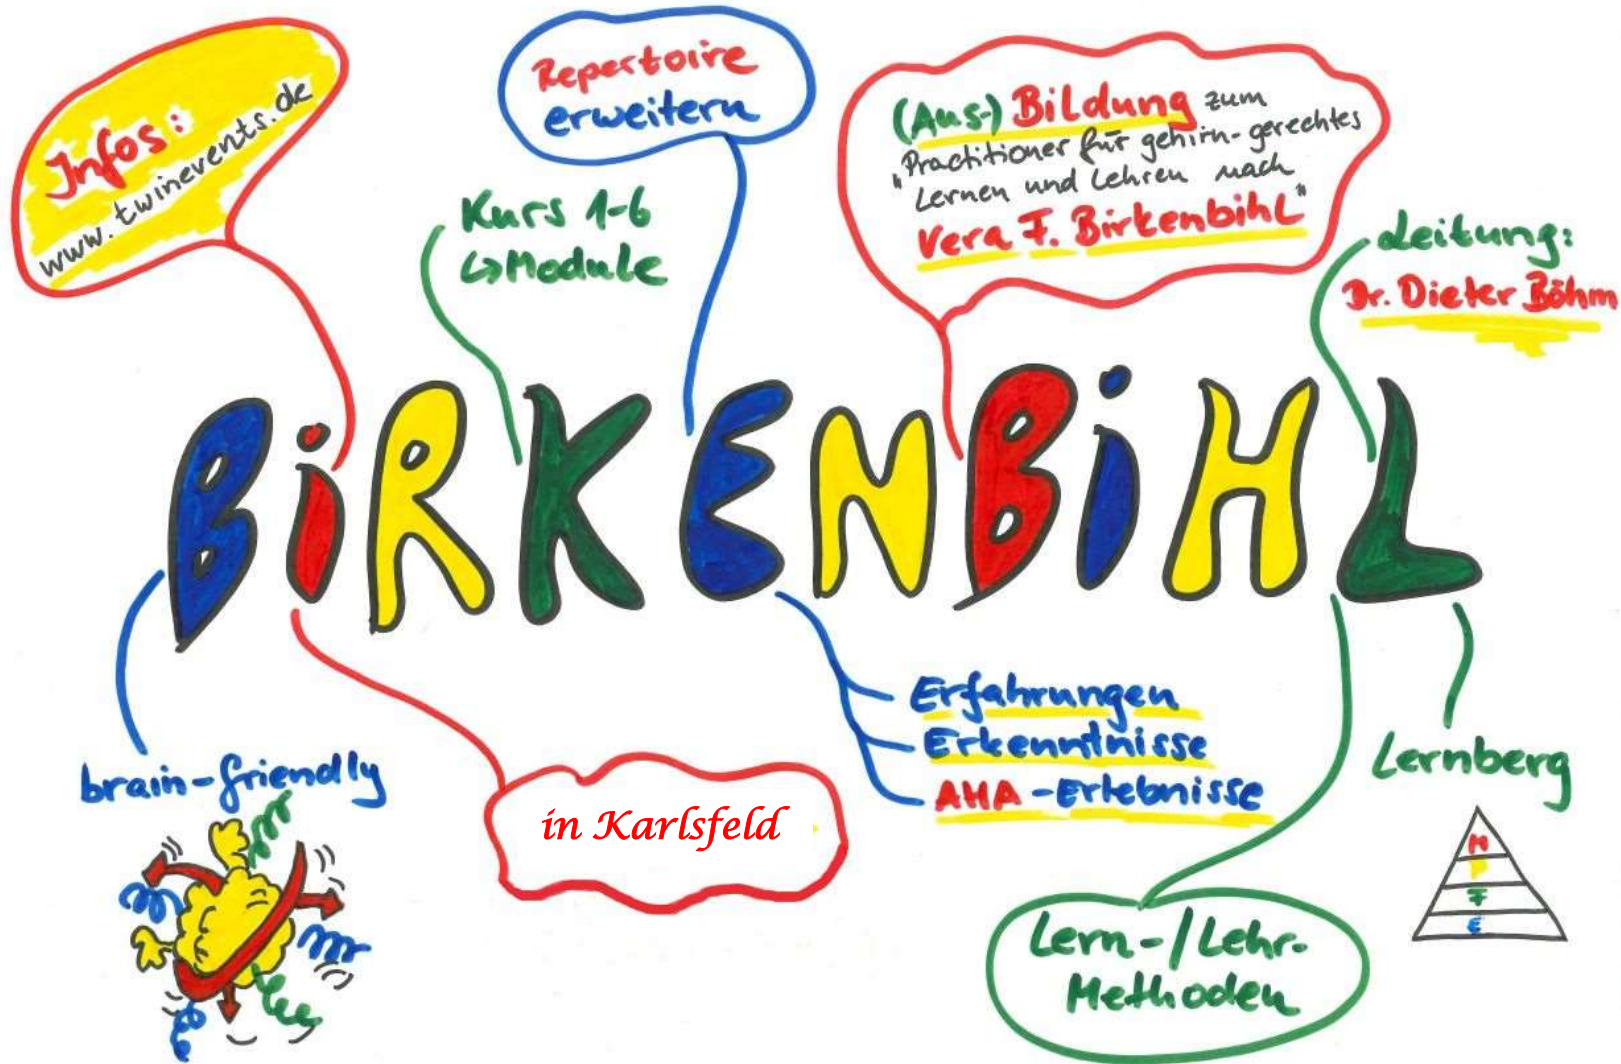 Infos:
www.twinevents.de
Repertoire
erweitern
Kurs 1-6
↳Module
(Aus-) Bildung zum
"Practitioner für gehirn-gerechtes
Lernen und Lehren nach
Vera F. Birkenbihl"
Leitung:
Dr. Dieter Böhm
BiRKENBiHL
brain-friendly
in Karlsfeld
Erfahrungen
Erkenntnisse
AHA-Erlebnisse
Lern-/Lehr-
Methoden
Lernberg
M
P
F
E